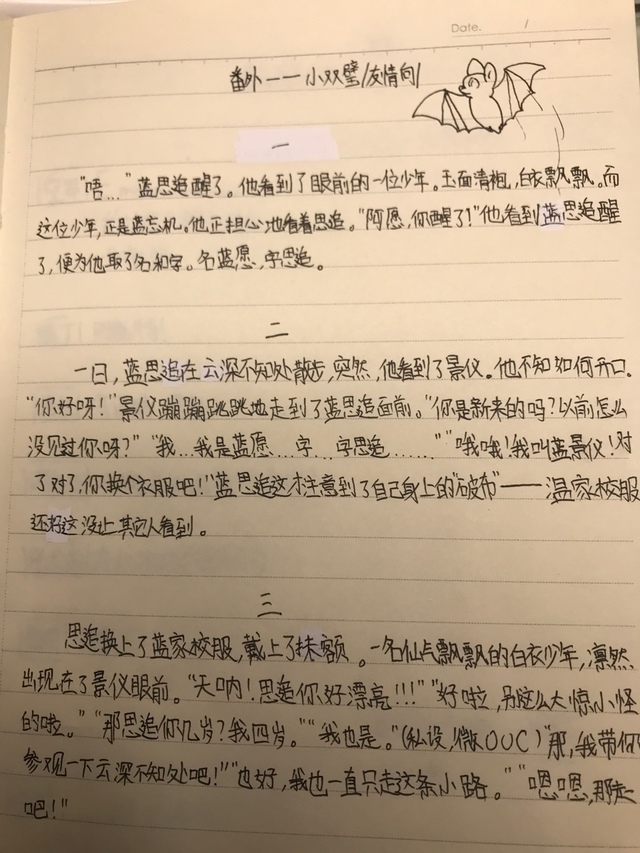 Date. /
番外——小双璧/友情向/
一
“唔…”蓝思追醒了。他看到了眼前的一位少年。玉面清相,白衣飘飘。而
这位少年,正是蓝忘机。他正担心地看着思追。“阿愿,你醒了!”他看到蓝思追醒
了,便为他取了名和字。名蓝愿,字思追。
二
一日,蓝思追在云深不知处散步,突然,他看到了景仪。他不知如何开口。
“你好呀!”景仪蹦蹦跳跳地走到了蓝思追面前。“你是新来的吗?以前怎么
没见过你呀?”“我…我是蓝愿…字…字思追……”“哦哦!我叫蓝景仪!对
了对了,你换个衣服吧!”蓝思追这才注意到了自己身上的“破布”——温家校服
还好这没让其它人看到。
三
思追换上了蓝家校服,戴上了抹额。一名仙气飘飘的白衣少年,凛然
出现在了景仪眼前。“天呐!思追你好漂亮!!!”“好啦,别这么大惊小怪
的啦。”“那思追你几岁?我四岁。”“我也是。”(私设,微OOC)“那,我带你
参观一下云深不知处吧!”“也好,我也一直只走这条小路。”“嗯嗯,那走
吧!”